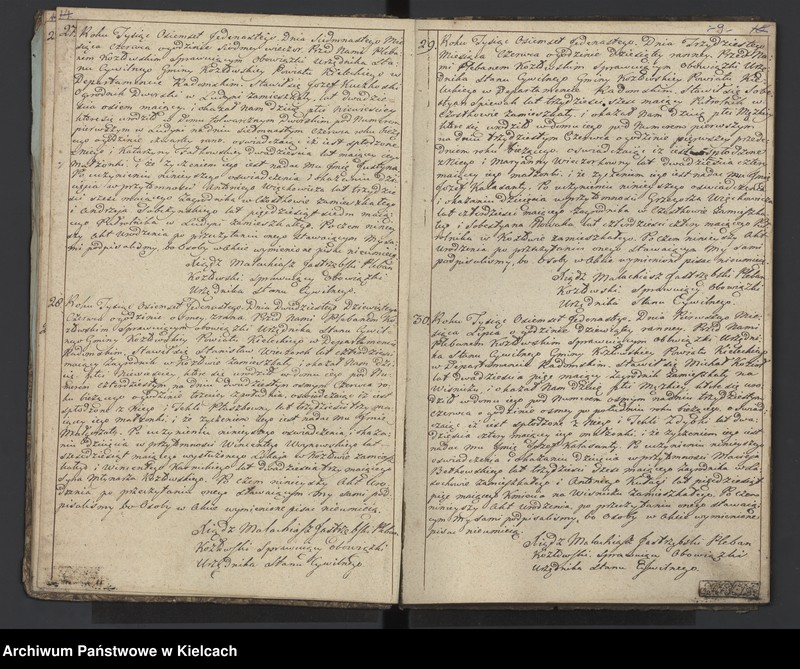 27. Roku Tysiąc Osiemset Jedenastego, Dnia Siedmnastego Mie-
siąca Czerwca o godzinie siodmey wieczor. Przed Nami Pleba-
nem Kozłowskim Sprawuiącym Obowiązki Urzędnika Sta-
nu Cywilnego Gminy Kozłowskiey Powiatu Kieleckiego w
Departamencie Radomskim. Stawił się Jozef
Ogrodnik Dworski w zamieszkały, lat dwadzie-
ścia osiem maiący i okazał Nam Dziecię płci niewieściey
ktore się urodziło w Domu Dworskim pod Numerem
pierwszym w na dniu siedmnastym Czerwca roku bieżą-
cego o godzinie czwarty rano, oswiadczaiąc iż iest spłodzone
z niego i Katarzyny dwudziestu lat maiący iego
Małżonki, i że życzeniem iego iest nadać mu Imie Justyna.
Po uczynieniu ninieyszego oświadczenia i okazaniu Dzie-
cięcia w przytomności lat trzydzie-
ści sześć maiącego Zagrodnika w zamieszkałego
i Andrzeia lat pięćdziesiąt siedm maią-
cego w zamieszkałego. Po czem niniey-
szy Akt Urodzenia po przeczytaniu onego stawaiącym My sami
podpisaliśmy, bo Osoby w Akcie wymienione pisać nieumieią.
Xiądz Małachiasz Jastrzębski Pleban
Kozłowski Sprawuiący Obowiązki
Urzędnika Stanu Cywilnego.
28. Roku Tysiąc Osiemset Jedenastego, Dnia Dwudziestego Dziewiątego
Czerwca o godzinie osmey zrana. Przed Nami Plebanem Ko-
złowskim Sprawuiącym obowiązki Urzędnika Stanu Cywil-
nego Gminy Kozłowskiey Powiatu Kieleckiego w Departamencie
Radomskim. Stawił się Stanisław Wieczorek lat czterdzieści
maiący Zagrodnik w zamieszkały, i okazał Nam Dzie-
cię płci Niewieściey, ktore się urodziło w domu iego pod Nu-
merem czterdziestym na dniu dwudziestym osmym Czerwca ro-
ku bieżącego o godzinie trzeciey z południa, oswiadczaiąc iż iest
spłodzone z Niego i Tekli lat trzydzieści trzy ma-
iącey iego małżonki, i że życzeniem iego iest nadać mu Imie
Małgorzata. Po uczynieniu ninieyszego oświadczenia i okaza-
niu Dziecięcia w przytomności Wincentego lat
sześćdziesiąt maiącego w Kozłowie zamiesz-
kałego i Wincentego lat dwadzieścia trzy maiącego
Syna Młynarza Kozłowskiego. Po czem ninieyszy Akt Uro-
dzenia po przeczytaniu onego stawaiącym My sami pod-
pisaliśmy bo Osoby w Akcie wymienione pisać nieumieią.
Xiądz Małachiasz Jastrzębski Pleban
Kozłowski Sprawuiący Obowiązki
Urzędnika Stanu Cywilnego
29. Roku Tysiąc Osiemset Jedenastego, Dnia Trzydziestego
Miesiąca Czerwca o godzinie dziesiąty ranney. Przed Na-
mi Plebanem Kozłowskim Sprawuiącym obowiązki Urzę-
dnika Stanu Cywilnego Gminy Kozłowskiey Powiatu Kie-
leckiego w Departamencie Radomskim, Stawił się
lat trzydzieści sześć maiący w
zamieszkały, i okazał Nam Dziecię płci Męzkiey
ktore się urodziło w domu iego pod Numerem pierwszym
w dniu trzydziestym Czerwca o godzinie pierwszey przed
Dniem roku bieżącego, oswiadczaiąc iż iest spłodzone
z Niego i Maryanny lat dwadzieścia cztery
maiącey iego małżonki, i że życzeniem iego iest nadać mu Imie
Jozef Kalasanty. Po uczynieniu ninieyszego oświadczenia
i okazaniu Dziecięcia w przytomności Grzegorza
lat czterdzieści maiącego Zagrodnika w zamieszka-
łego i Sebestyana Nowaka lat czterdzieści cztery maiącego
w Kozłowie zamieszkałego. Po czem ninieyszy Akt
Urodzenia po przeczytaniu onego stawaiącym My sami
podpisaliśmy, bo Osoby w Akcie wymienione pisać nieumieią.
Xiądz Małachiasz Jastrzębski Pleban
Kozłowski Sprawuiący Obowiązki
Urzędnika Stanu Cywilnego.
30. Roku Tysiąc Osiemset Jedenastego, Dnia Pierwszego Mie-
siąca Lipca o godzinie Dziewiąty ranney. Przed Nami
Plebanem Kozłowskim Sprawuiącym obowiązki Urzędni-
ka Stanu Cywilnego Gminy Kozłowskiey Powiatu Kieleckiego
w Departamencie Radomskim. Stawił się Michał
lat dwadzieścia pięć maiący Zagrodnik zamieszkały na
Wiśniku, i okazał Nam Dziecię płci Męzkiey, ktore się uro-
dziło w domu iego pod Numerem osmym na dniu trzydziestym
Czerwca o godzinie osmey po południu roku bieżącego, oswiad-
czaiąc iż iest spłodzone z Niego i Tekli lat dwa-
dzieścia cztery maiącey iego małżonki, i że życzeniem iego iest
nadać mu Imie Jozef Kalasanty. Po uczynieniu ninieyszego
oświadczenia i okazaniu Dziecięcia w przytomności Macieia
lat trzydzieści sześć maiącego Zagrodnika
zamieszkałego i Antoniego lat pięćdziesiąt
pięć maiącego Kmiecia na Wiśniku zamieszkałego. Po czem
ninieyszy Akt Urodzenia, po przeczytaniu onego stawaią-
cym My sami podpisaliśmy, bo Osoby w Akcie wymienione
pisać nieumieią.
Xiądz Małachiasz Jastrzębski Pleban
Kozłowski Sprawuiący Obowiązki
Urzędnika Stanu Cywilnego.
Archiwum Państwowe w Kielcach